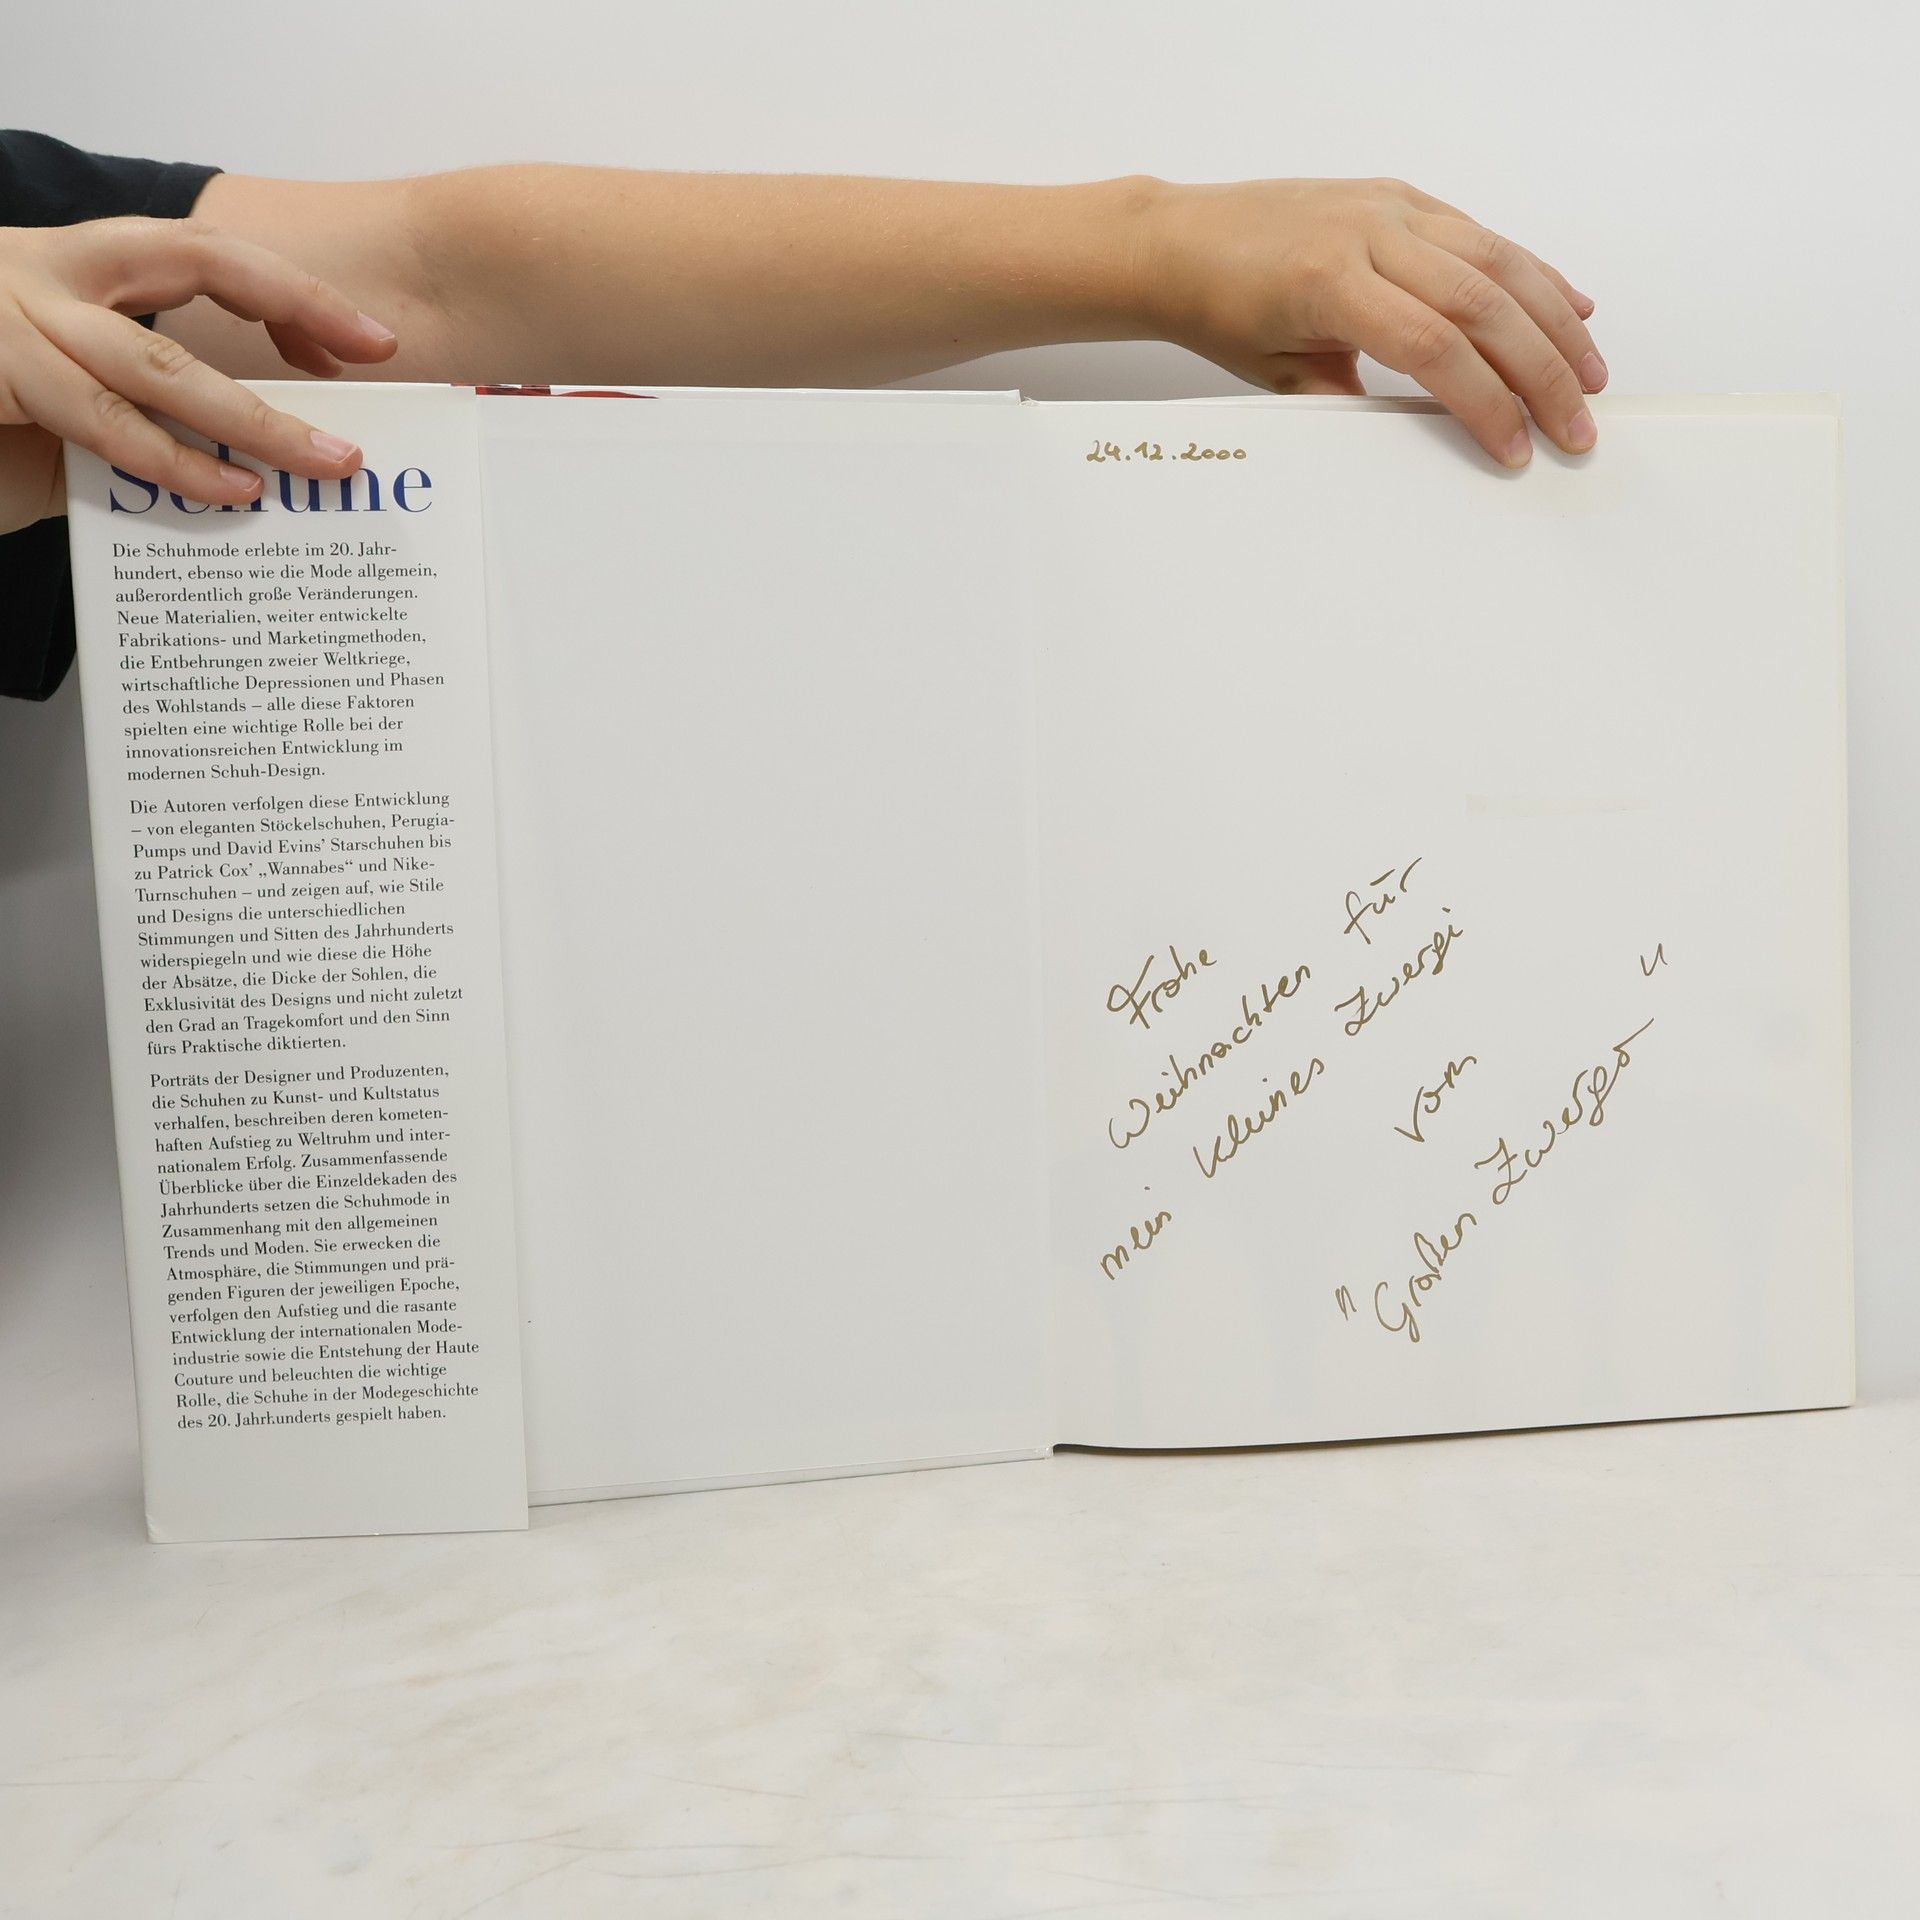 Schuhe
Die Schuhmode erlebte im 20. Jahr-
hundert, ebenso wie die Mode allgemein,
außerordentlich große Veränderungen.
Neue Materialien, weiter entwickelte
Fabrikations- und Marketingmethoden,
die Entbehrungen zweier Weltkriege,
wirtschaftliche Depressionen und Phasen
des Wohlstands – alle diese Faktoren
spielten eine wichtige Rolle bei der
innovationsreichen Entwicklung im
modernen Schuh-Design.
Die Autoren verfolgen diese Entwicklung
– von eleganten Stöckelschuhen, Perugia-
Pumps und David Evins’ Starschuhen bis
zu Patrick Cox’ „Wannabes“ und Nike-
Turnschuhen – und zeigen auf, wie Stile
und Designs die unterschiedlichen
Stimmungen und Sitten des Jahrhunderts
widerspiegeln und wie diese die Höhe
der Absätze, die Dicke der Sohlen, die
Exklusivität des Designs und nicht zuletzt
den Grad an Tragekomfort und den Sinn
fürs Praktische diktierten.
Porträts der Designer und Produzenten,
die Schuhen zu Kunst- und Kultstatus
verhalfen, beschreiben deren kometen-
haften Aufstieg zu Weltruhm und inter-
nationalem Erfolg. Zusammenfassende
Überblicke über die Einzeldekaden des
Jahrhunderts setzen die Schuhmode in
Zusammenhang mit den allgemeinen
Trends und Moden. Sie erwecken die
Atmosphäre, die Stimmungen und prä-
genden Figuren der jeweiligen Epoche,
verfolgen den Aufstieg und die rasante
Entwicklung der internationalen Mode-
industrie sowie die Entstehung der Haute
Couture und beleuchten die wichtige
Rolle, die Schuhe in der Modegeschichte
des 20. Jahrhunderts gespielt haben.
24.12.2000
Frohe
Weihnachten für
mein kleines Zwergi
vom
"Großen Zwergo"